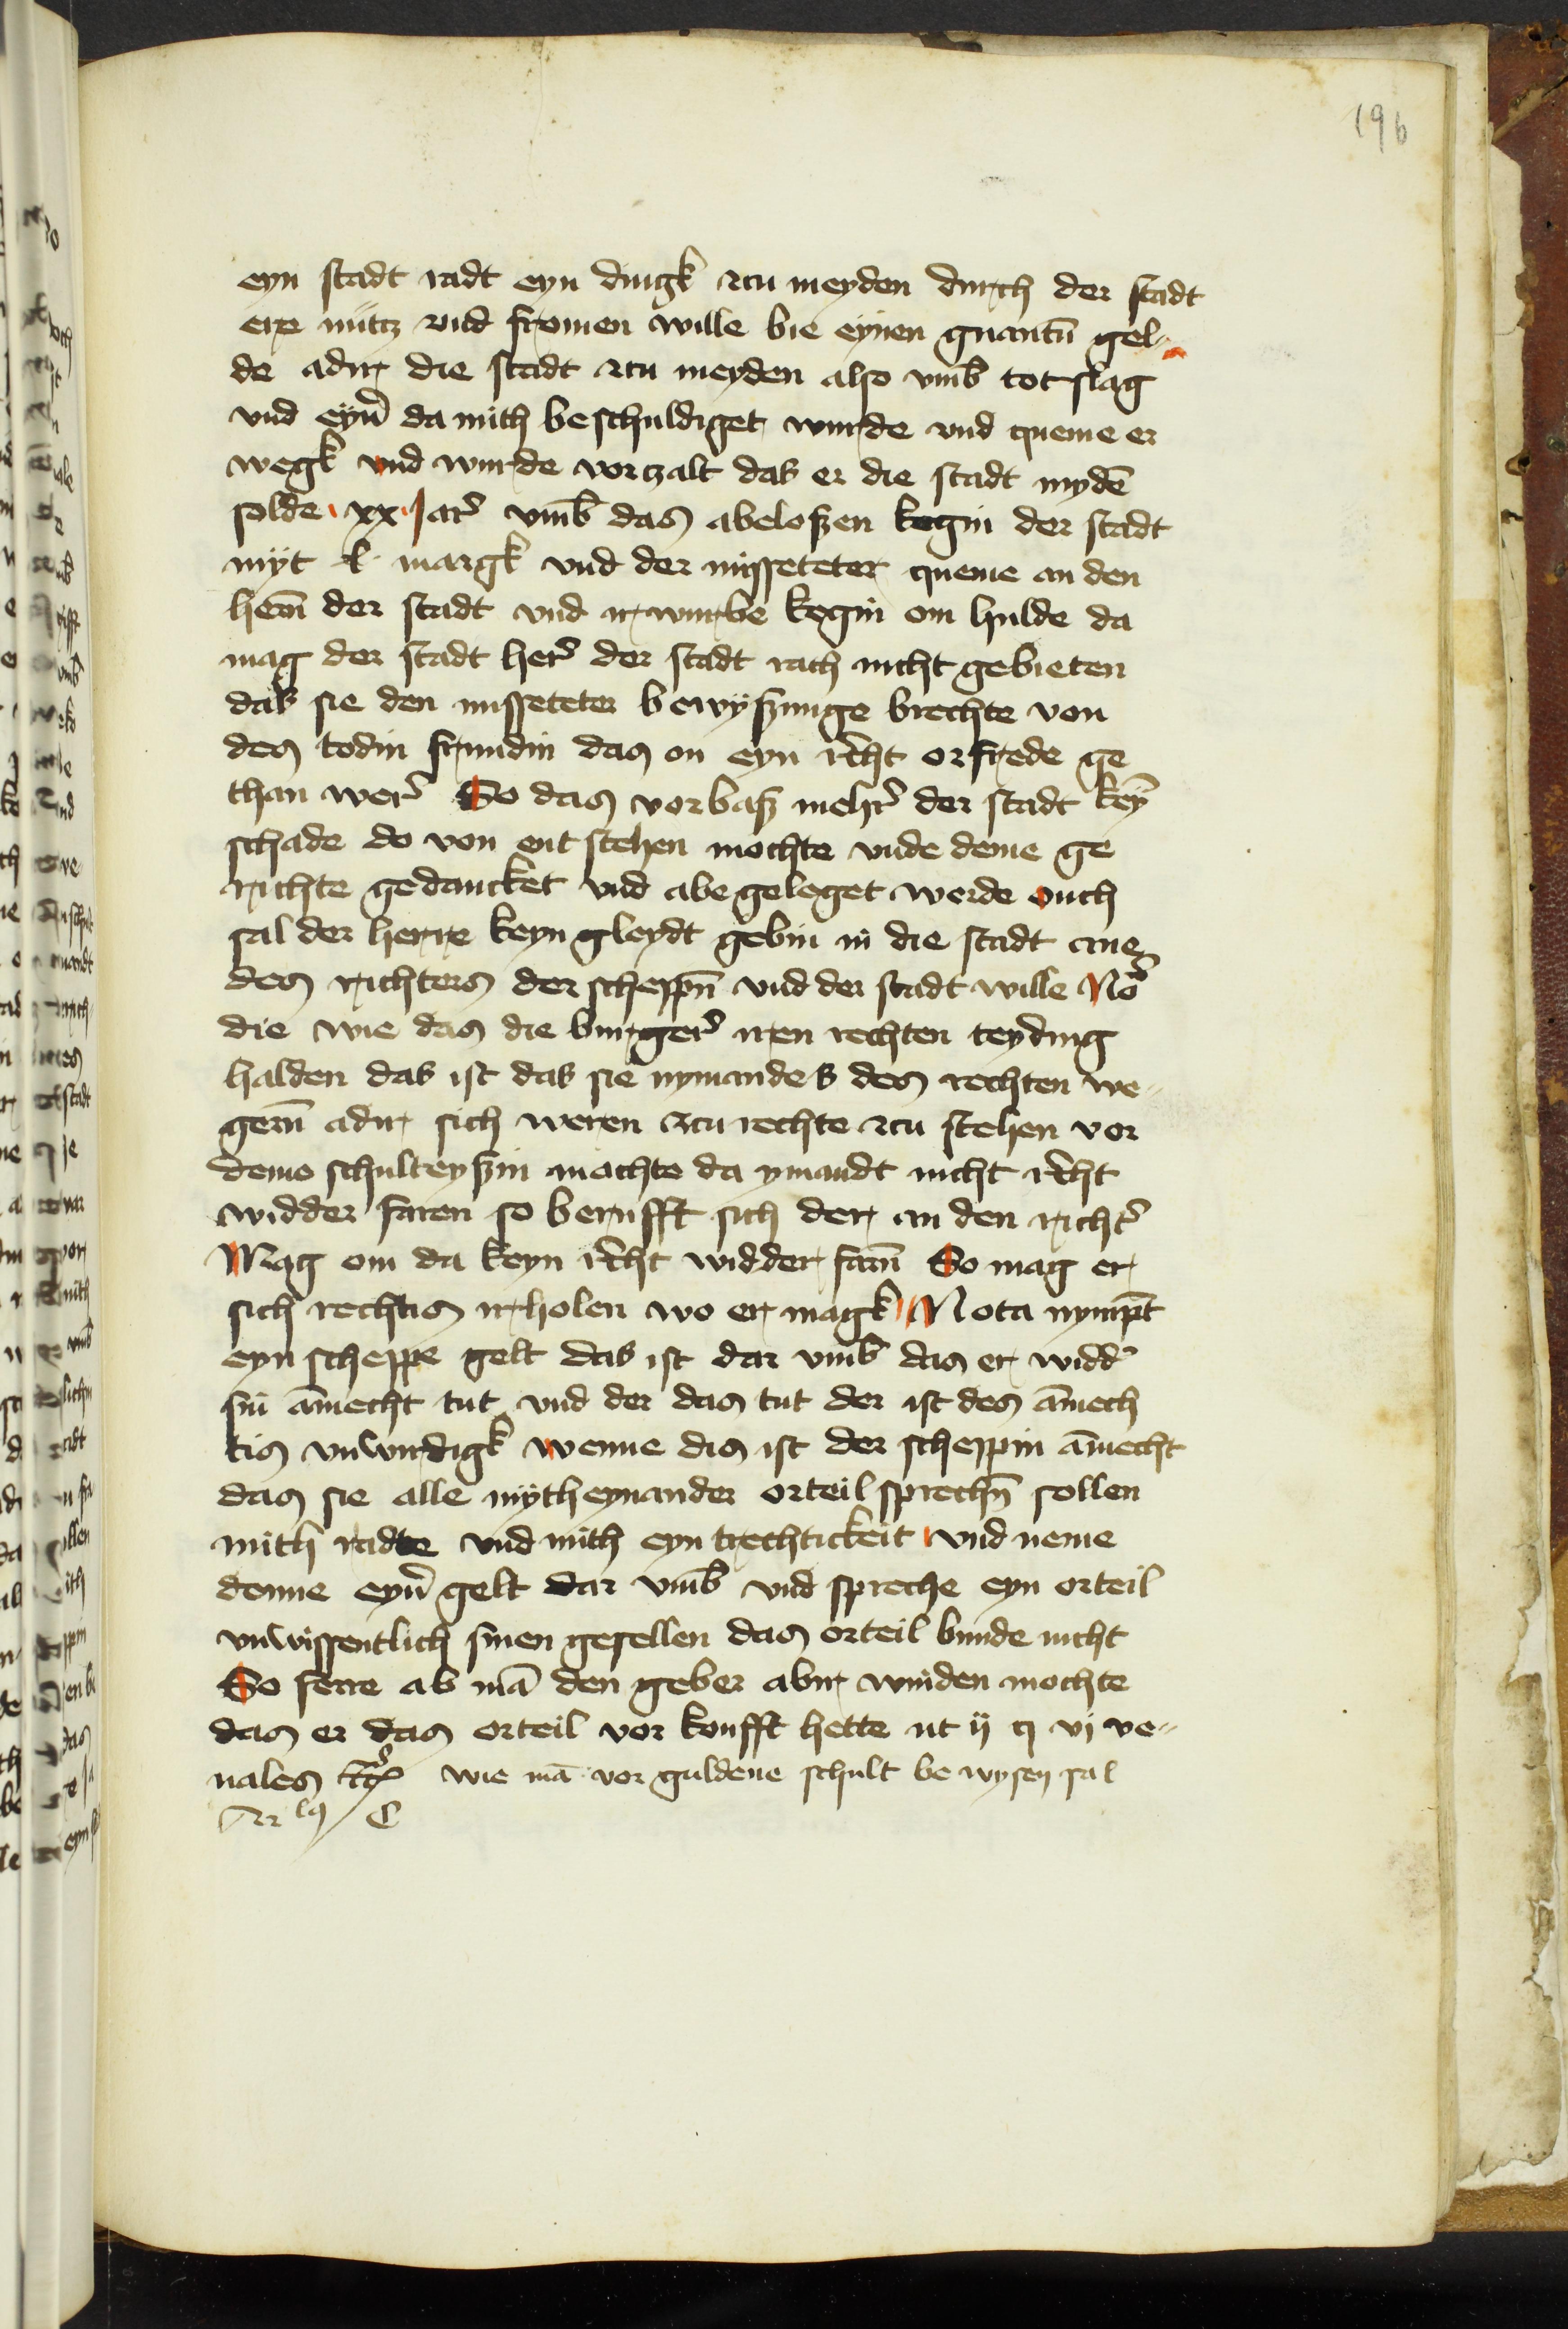 196
eyn stadt radt eyn dingk zcu meyden durch der stadt
ere nütcz vnd fromen wille bie eynen gnantū gel-
de adir die stadt zcu meyden also vmb totslag
vnd eyn̄ da mith beschuldiget wurde vnd queme er
wegk vnd wurde vorczalt das er die stadt mydē
solde xx Jar vmb das abeloszen kegin der stadt
myt l margk vnd der misseteter queme an den
hern̄ der stadt vnd irwurbe kegin om hulde da
mag der stadt her der stadt rath nicht gebieten
das sie den misseteter bewyszunge brechte von
des todin frundin das on eyn recht orfrede ge
than wer So das vorbasz mehr der stadt keyn̄
schade do von entstehen mochte vnde deme ge
richte gedancket vnd abegeleget werde ouch
sal der herre keyn gleydt gebin in die stadt ane
des richters der scheppn̄ vnd der stadt wille No
die wie das die burger iren rechten teyding
halden das ist das sie nymandes des rechten we-
gern̄ adir sich weren zcu rechte zcu stehen vor
deme schulteyszin mochte da ymandt nicht recht
widder faren so berufft sich der an den richter
Mag om da keyn recht widder farn̄ So mag er
sich rechtis irholen wo er magk Nota nympt
eyn scheppe gelt das ist dar vmb das er widder
sin āmecht tut vnd der das tut der ist des āmech
tis vnwirdigk wenne dis ist der scheppin āmecht
das sie alle mytheynander orteil sprechn̄ sollen
mith radte vnd mith eyntrechtickeit vnd neme
denne eyn̄ gelt dar vmb vnd spreche eyn orteil
vnwissentlich sinen gesellen das orteil bunde nicht
So ferre ab mā den geber abir winden mochte
das er das orteil vor koufft hette ut ij q vj ve-
nales wie mā vor guldene schult bewysen sal